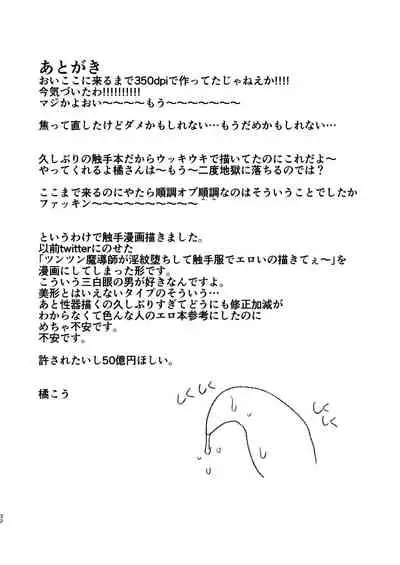 あとがき
おいここに来るまで350dpiで作ってたじゃねえか!!!!
今気づいたわ!!!!!!!!!!
マジかよおい〜〜〜〜もう〜〜〜〜〜〜〜
焦って直したけどダメかもしれない…もうだめかもしれない…
久しぶりの触手本だからウッキウキで描いてたのにこれだよ〜
やってくれるよ橘さんは〜二度地獄に落ちるのでは？
ここまで来るのにやたら順調オブ順調なのはそういうことでしたか
ファッキン〜〜〜〜〜〜〜〜〜〜
というわけで触手漫画描きました。
以前twitterにのせた
「ツンツン魔導師が淫紋堕ちして触手服でエロいの描きてぇ〜」を
漫画にしてしまった形です。
こういう三白眼の男が好きなんですよ。
美形とはいえないタイプのそういう…
あと性器描くの久しぶりすぎてどうにも修正加減が
わからなくて色んな人のエロ本参考にしたのに
めちゃ不安です。
不安です。
許されたいし50億円ほしい。
橘こう
しくしく
しくしく